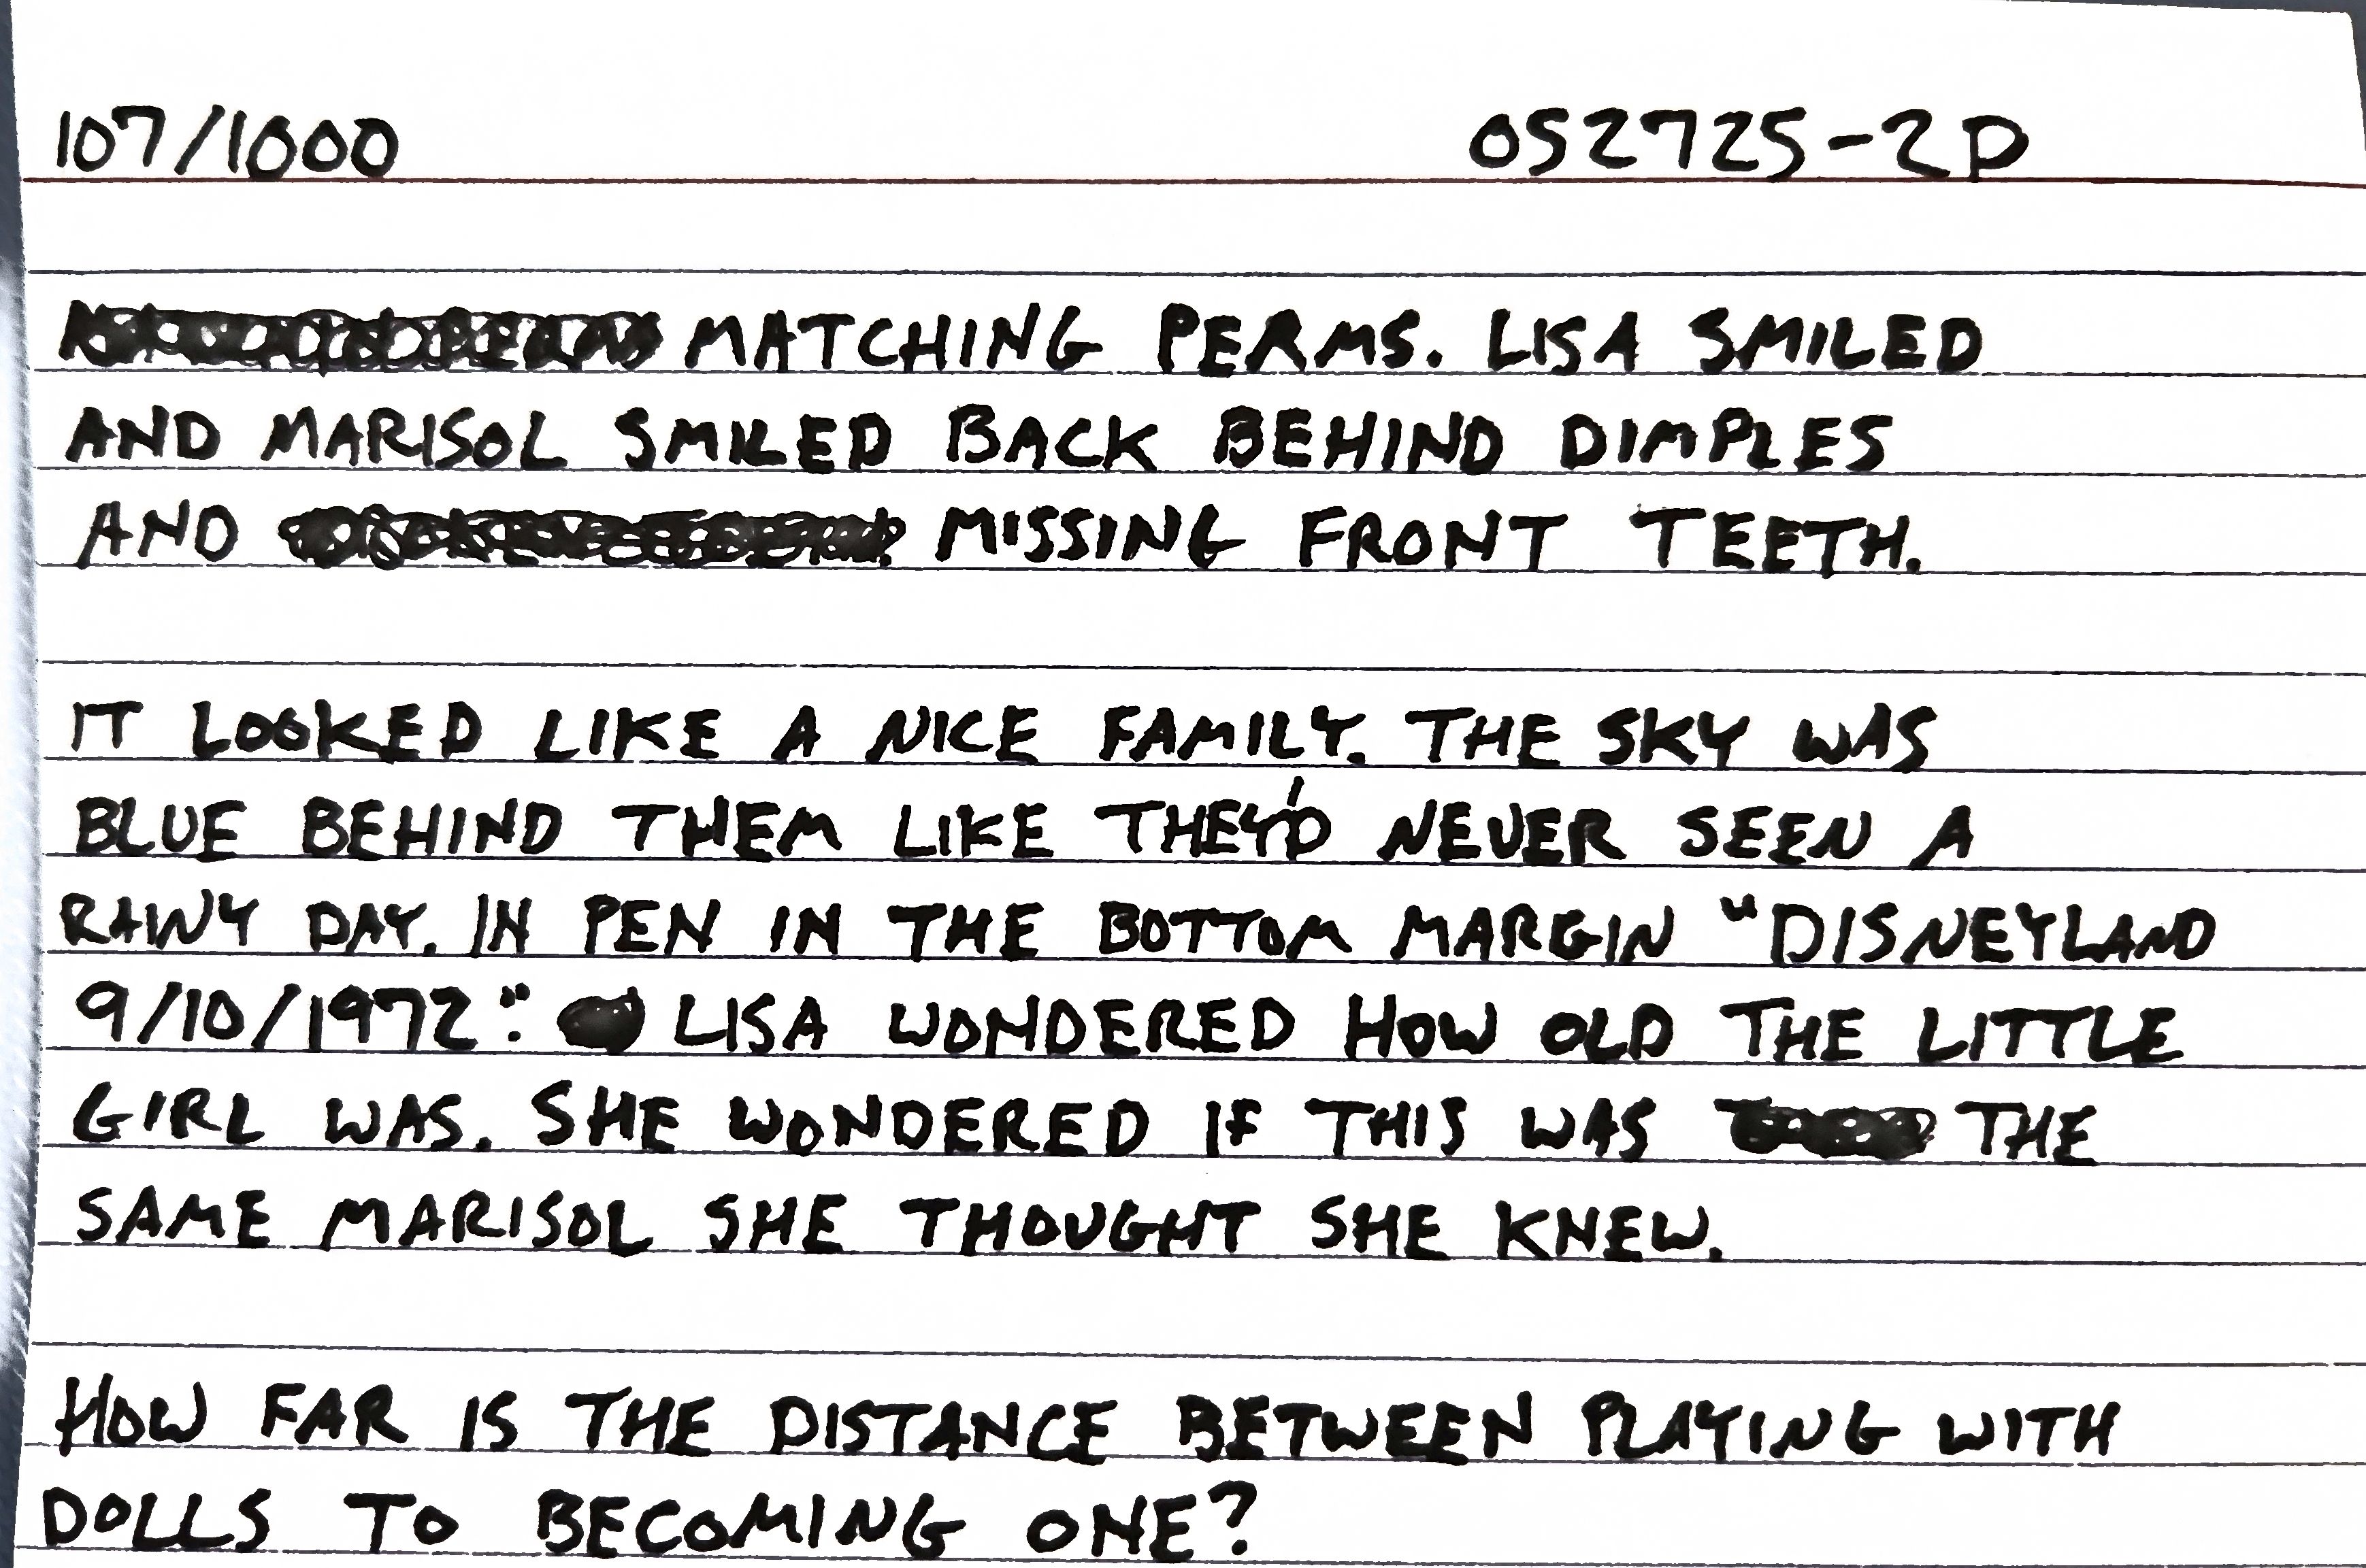 107/1000 052725-2P
MATCHING PERMS. LISA SMILED
AND MARISOL SMILED BACK BEHIND DIMPLES
AND MISSING FRONT TEETH.
IT LOOKED LIKE A NICE FAMILY. THE SKY WAS
BLUE BEHIND THEM LIKE THEY'D NEVER SEEN A
RAINY DAY. IN PEN IN THE BOTTOM MARGIN "DISNEYLAND
9/10/1972". LISA WONDERED HOW OLD THE LITTLE
GIRL WAS. SHE WONDERED IF THIS WAS THE
SAME MARISOL SHE THOUGHT SHE KNEW.
HOW FAR IS THE DISTANCE BETWEEN PLAYING WITH
DOLLS TO BECOMING ONE?